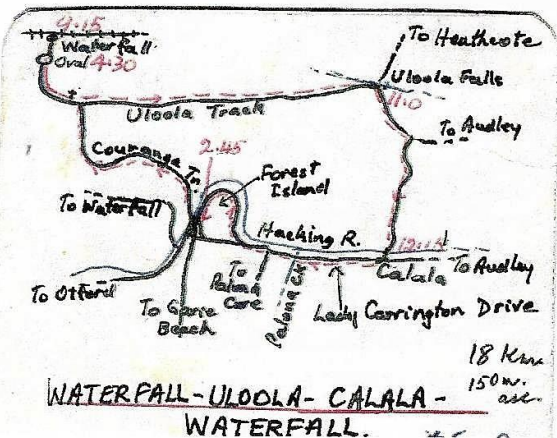 9.15
Waterfall
Oval 4.30
To Heathcote
Uloola Falls
11.0
Uloola Track
To Audley
Couranga Tr.
2.45
Forest
Island
To Waterfall
Hacking R.
12.15
To Audley
Calala
To
Palona
Cave
Palona Ck
Lady Carrington Drive
To Otford
To Garie
Beach
18 Km
150 m.
asc.
WATERFALL-ULOOLA-CALALA-
WATERFALL.